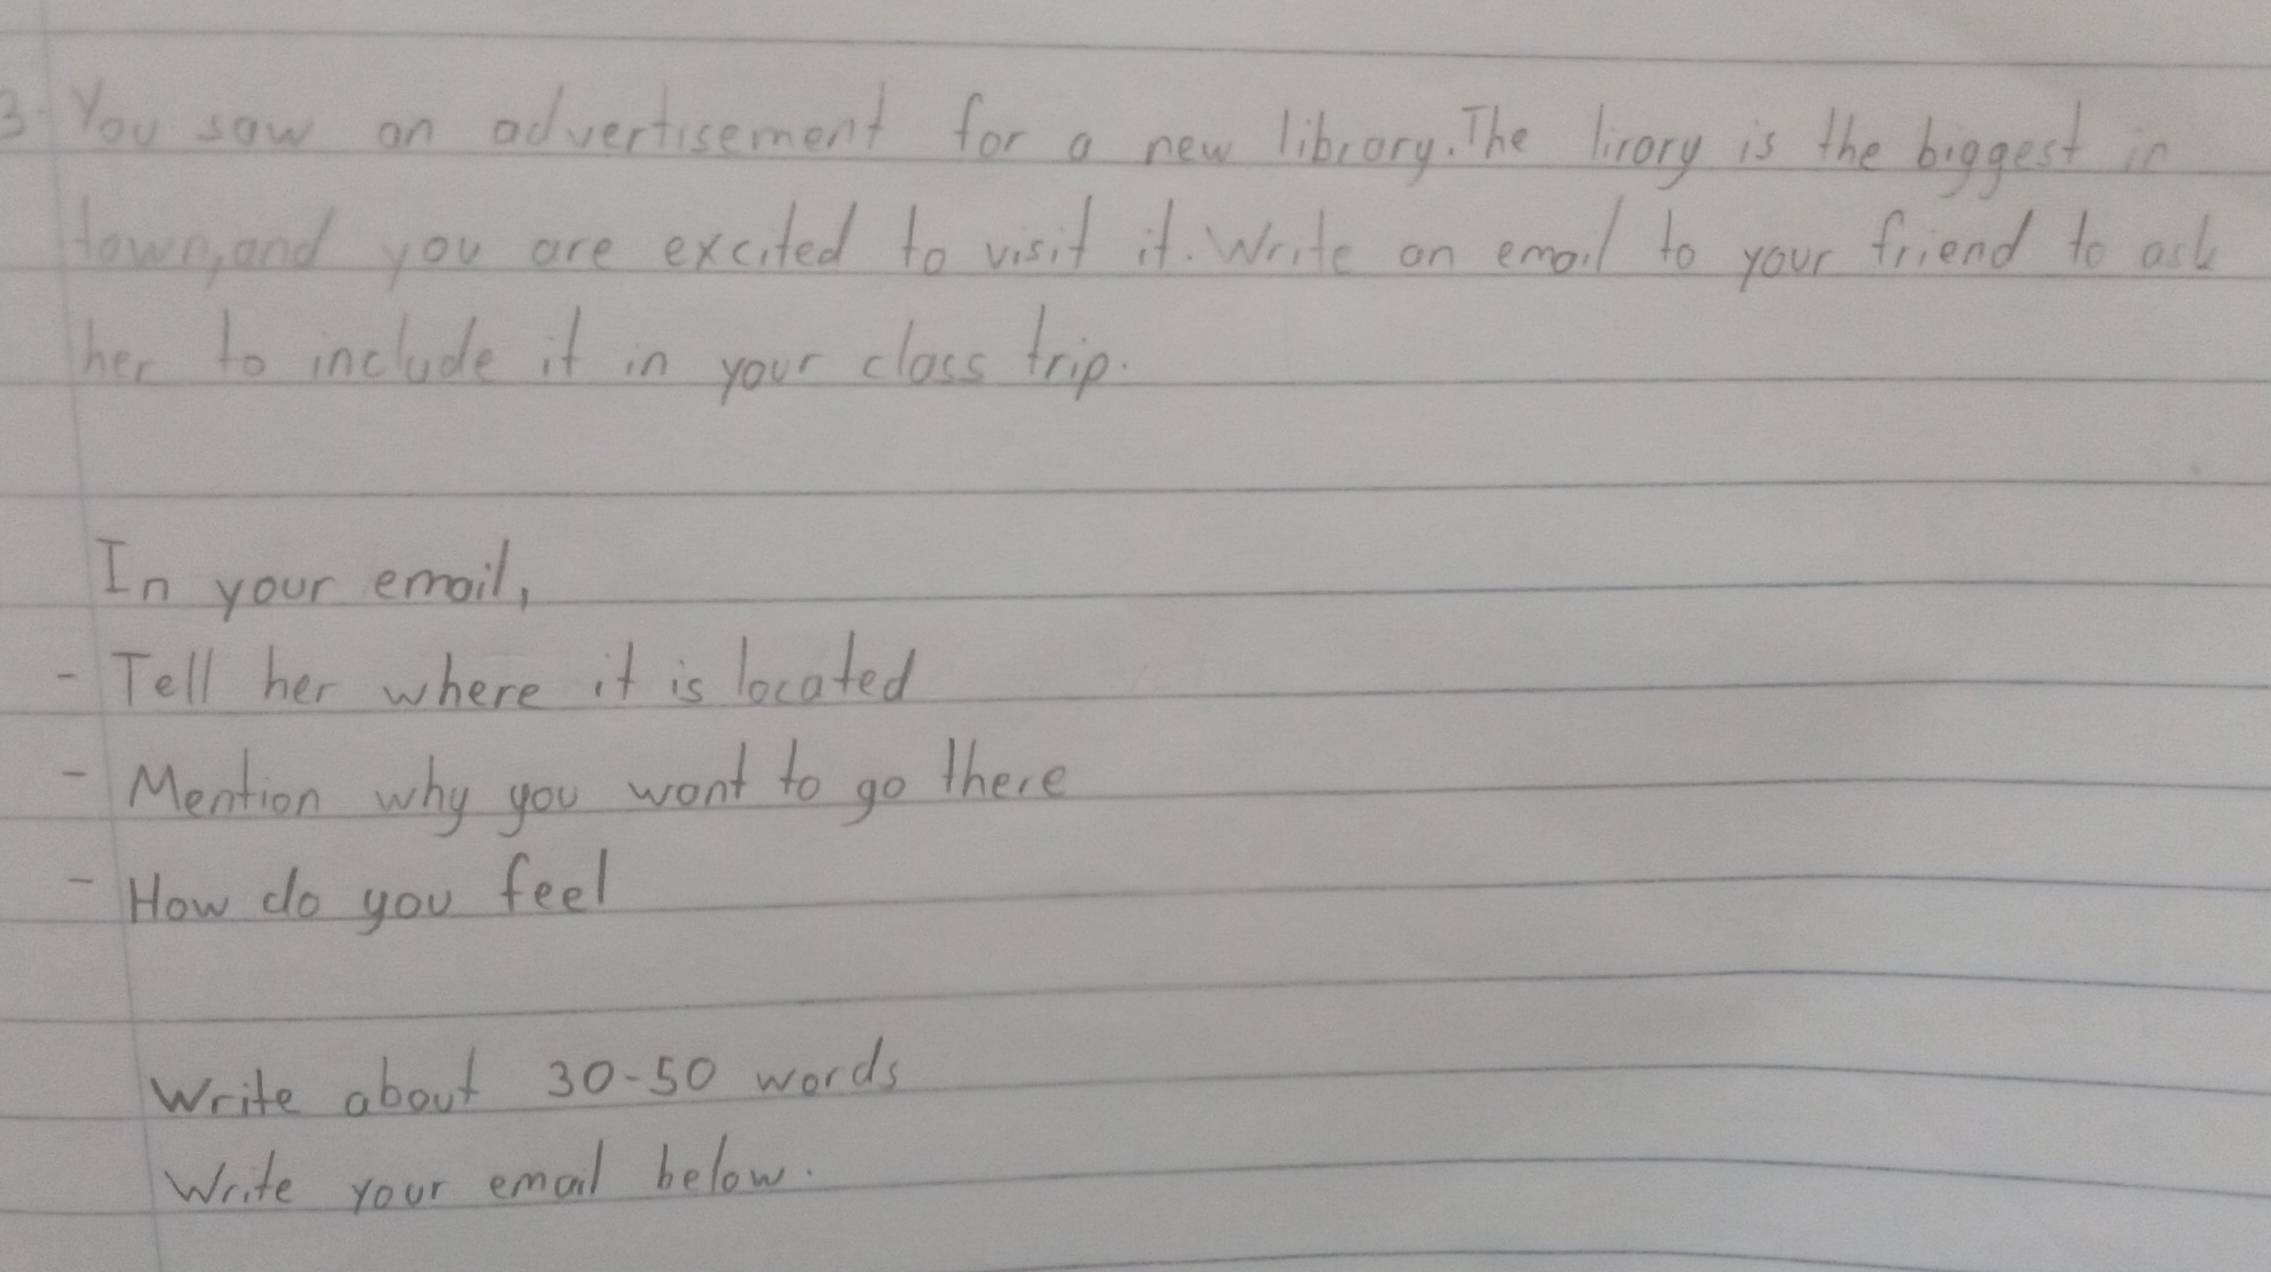 3. You saw an advertisement for a new library. The lirary is the biggest in
town, and you are excited to visit it. Write an email to your friend to ask
her to include it in your class trip.
In your email,
- Tell her where it is located
- Mention why you want to go there
- How do you feel
Write about 30-50 words
Write your email below.